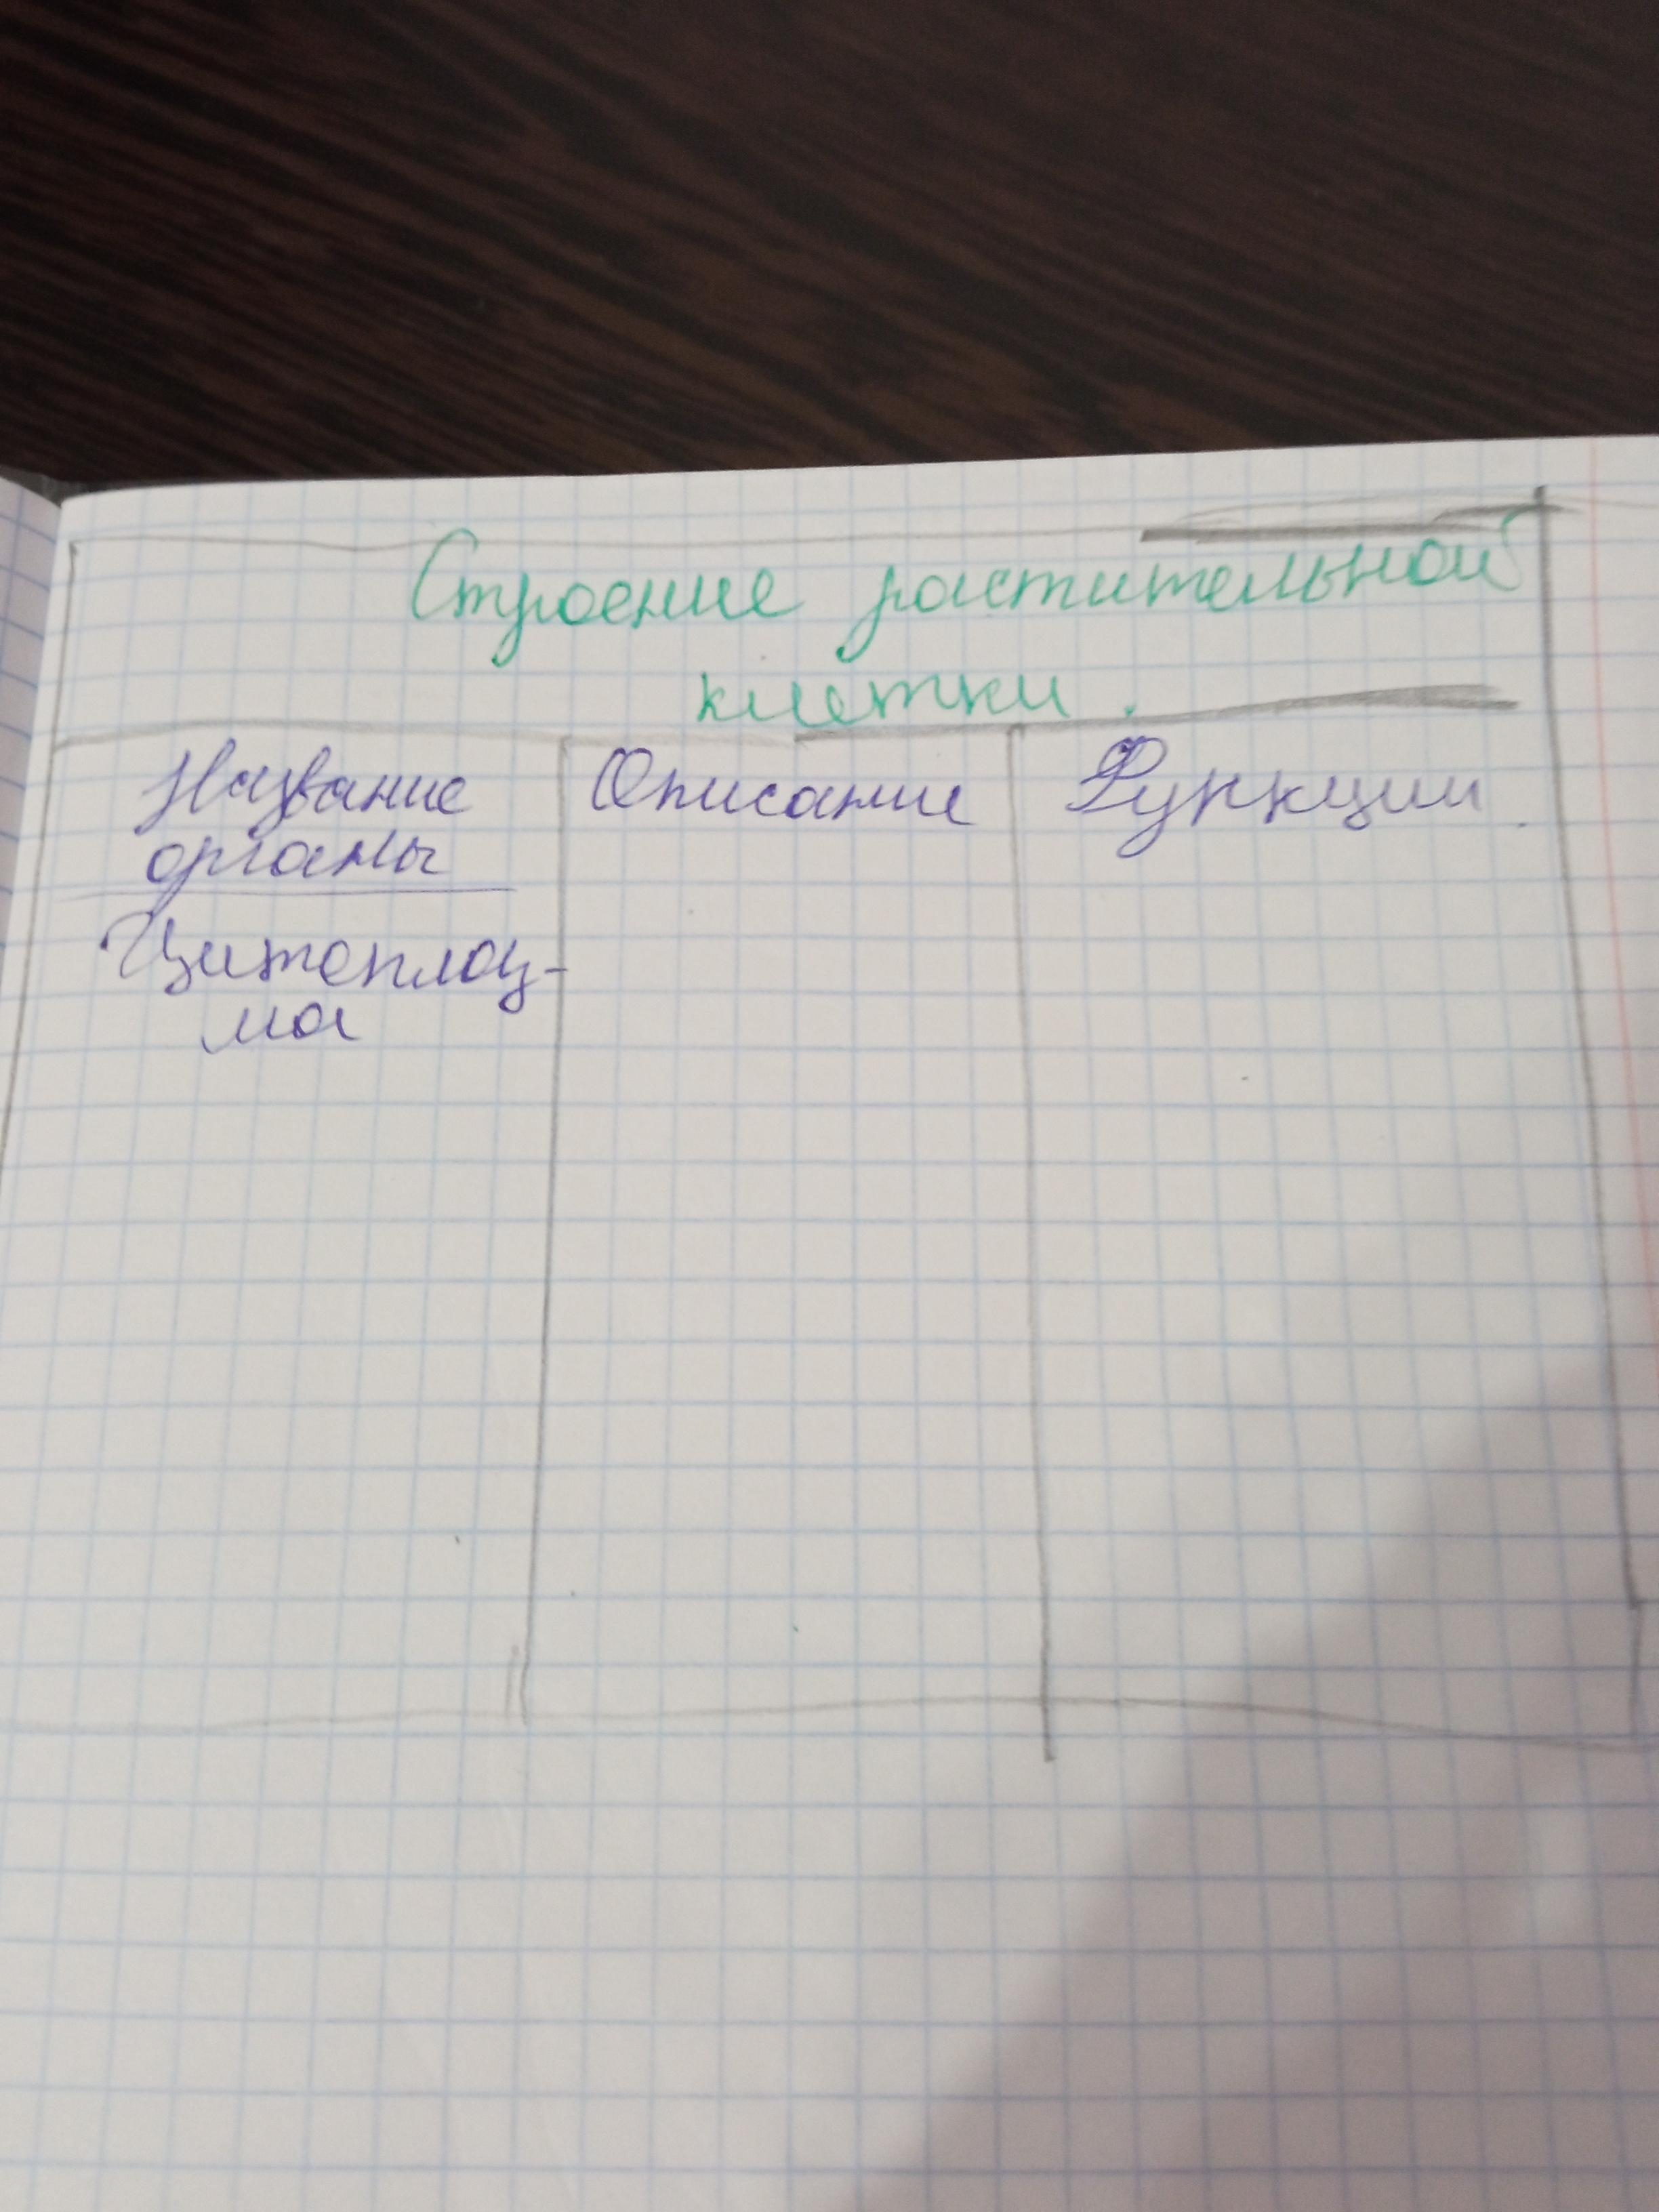 Строение растительной
клетки.
Название
органы
Описание
Функции
Цитоплаз-
ма